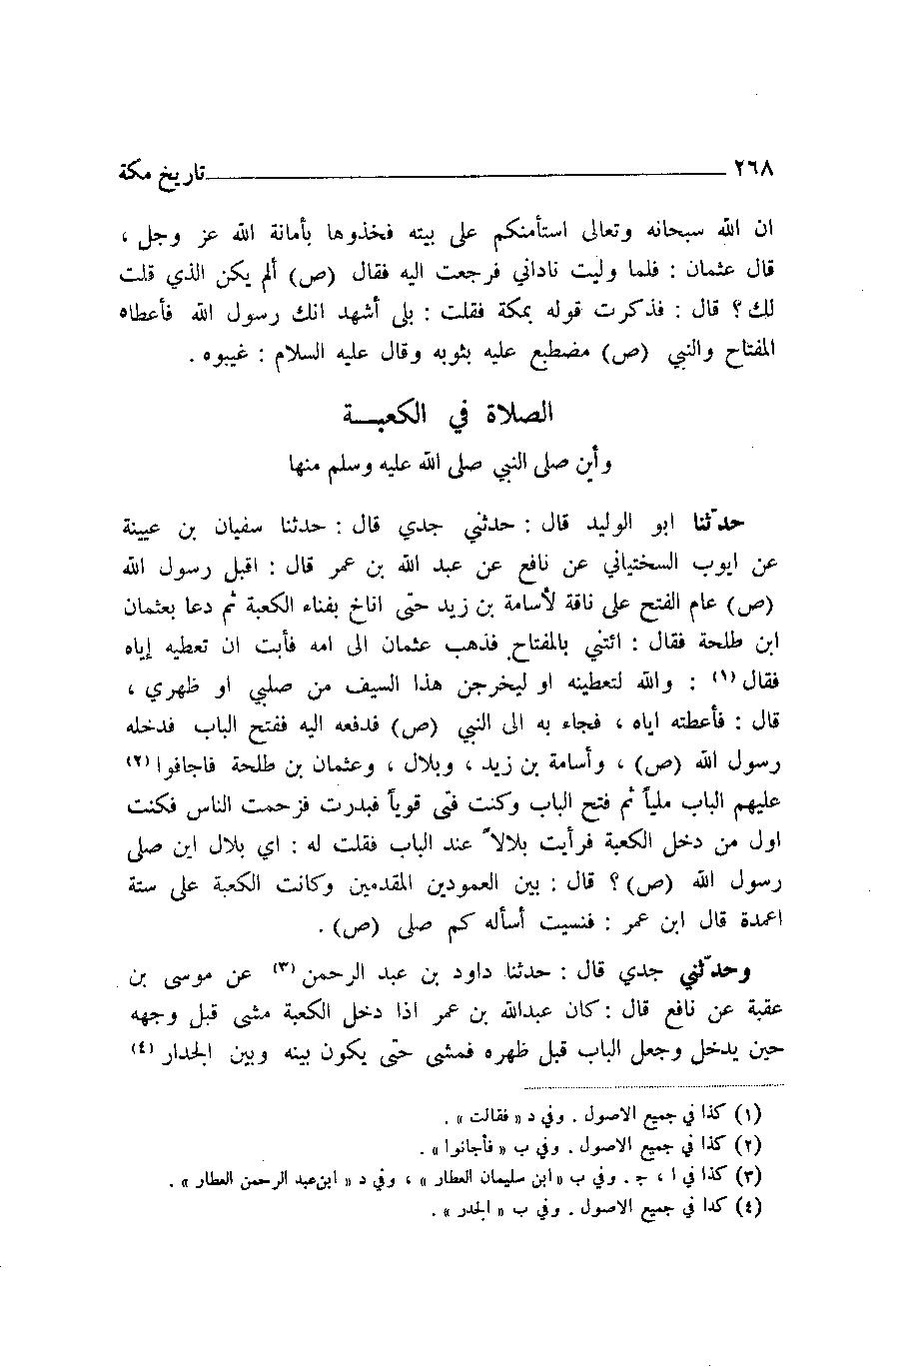 ٢٦٨ تاريخ مكة
ان الله سبحانه وتعالى استأمنكم على بيته فخذوها بأمانة الله عز وجل ،
قال عثمان : فلما وليت ناداني فرجعت اليه فقال (ص) ألم يكن الذي قلت
لك ؟ قال : فذكرت قوله بمكة فقلت : بلى أشهد انك رسول الله فأعطاه
المفتاح والنبي (ص) مضطبع عليه بثوبه وقال عليه السلام : غيبوه .
الصلاة في الكعبـــة
وأين صلى النبي صلى الله عليه وسلم منها
حدّثنا ابو الوليد قال : حدثني جدي قال : حدثنا سفيان بن عيينة
عن ايوب السختياني عن نافع عن عبد الله بن عمر قال : اقبل رسول الله
(ص) عام الفتح على ناقة لأسامة بن زيد حتى اناخ بفناء الكعبة ثم دعا بعثمان
ابن طلحة فقال : ائتني بالمفتاح فذهب عثمان الى امه فأبت ان تعطيه إياه
فقال (١) : والله لتعطينه او ليخرجن هذا السيف من صلبي او ظهري ،
قال : فأعطته اياه ، فجاء به الى النبي (ص) فدفعه اليه ففتح الباب فدخله
رسول الله (ص) ، وأسامة بن زيد ، وبلال ، وعثمان بن طلحة فاجافوا (٢)
عليهم الباب ملياً ثم فتح الباب وكنت فتى قوياً فبدرت فزحمت الناس فكنت
اول من دخل الكعبة فرأيت بلالاً عند الباب فقلت له : اي بلال اين صلى
رسول الله (ص) ؟ قال : بين العمودين المقدمين وكانت الكعبة على ستة
اعمدة قال ابن عمر : فنسيت أسأله كم صلى (ص) .
وحدّثني جدي قال : حدثنا داود بن عبد الرحمن (٣) عن موسى بن
عقبة عن نافع قال : كان عبدالله بن عمر اذا دخل الكعبة مشى قبل وجهه
حين يدخل وجعل الباب قبل ظهره فمشى حتى يكون بينه وبين الجدار (٤)
(١) كذا في جميع الاصول . وفي د « فقالت » .
(٢) كذا في جميع الاصول . وفي ب « فأجانوا » .
(٣) كذا في ا ، ج . وفي ب « ابن سليمان العطار » ، وفي د « ابن عبد الرحمن العطار » .
(٤) كدا في جميع الاصول . وفي ب « الجدر » .